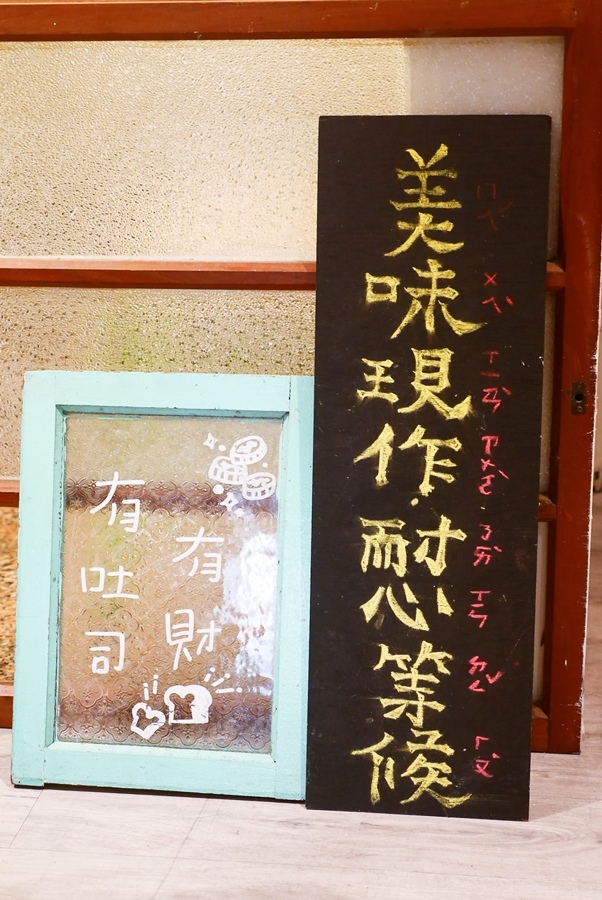 有吐司
有財
美味現作耐心等候
ㄇㄟˇ ㄨㄟˋ ㄒㄧㄢˋ ㄗㄨㄛˋ ㄋㄞˋ ㄒㄧㄣ ㄉㄥˇ ㄏㄡˋ